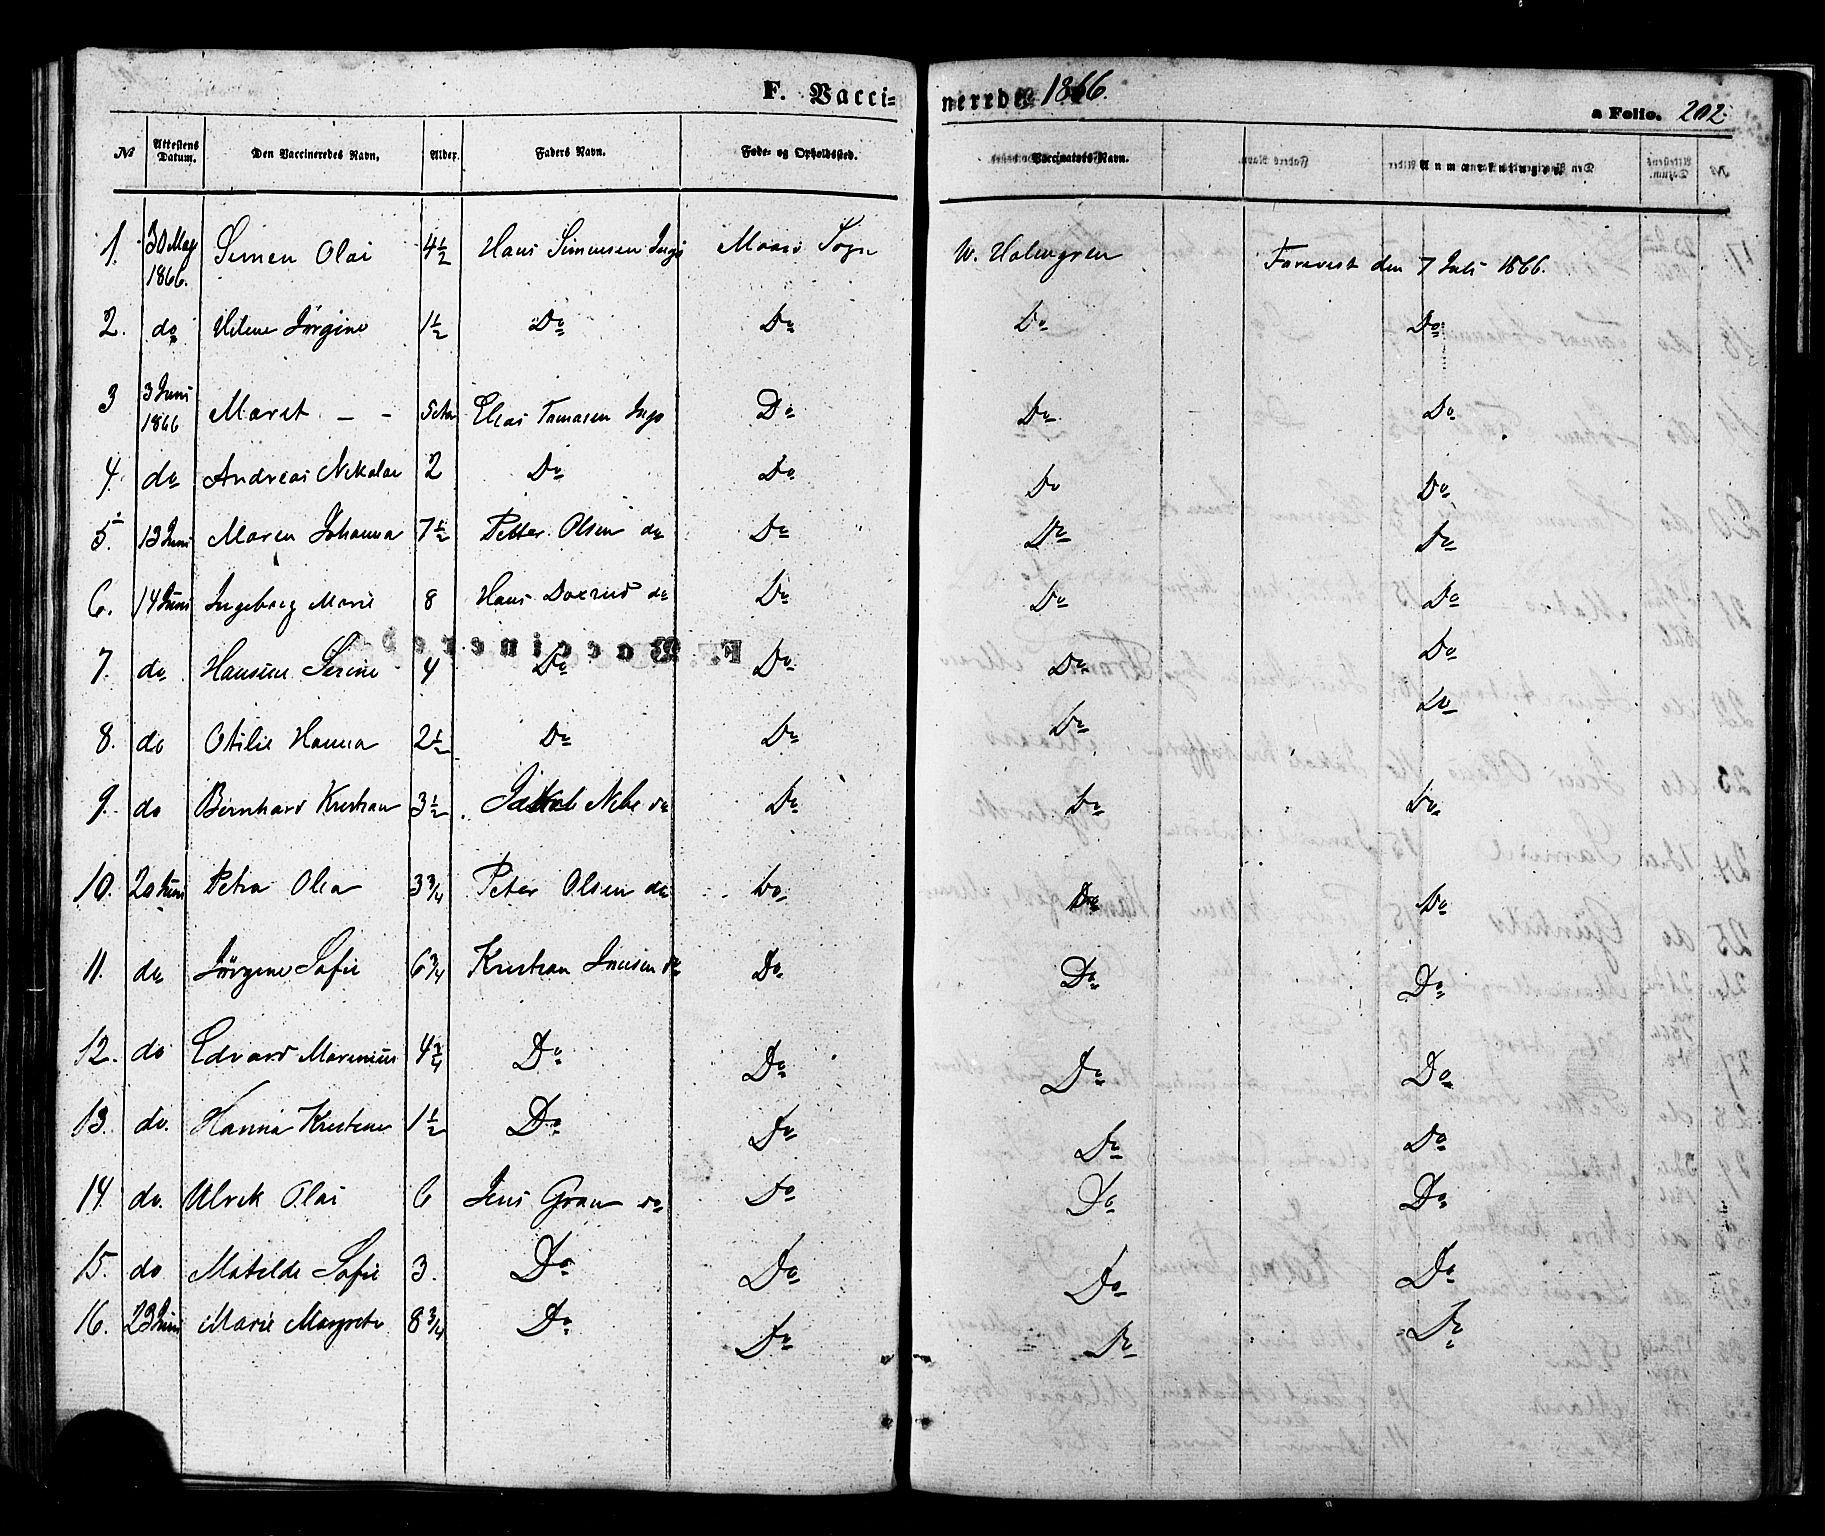 F. Vacci- nerede 1866.
a Folio. 202.
№ Attestens Datum. Den Vaccineredes Navn. Alder. Faders Navn. Føde- og Opholdssted. Vaccinateurs Navn. Anmærkninger.
1. 30 May 1866. Simen Olai 4½ Hans Simensen Ingø Maasø Sogn W. Holmgren den 7 Juli 1866.
2. do Helene Jørgine 1½ Do Do Do Do
3 3 Juni 1866 Maret - - Elias Tomasen Ingø Do Do Do
4. do Andreas Nikolai 2 Do Do Do Do
5. 13 Juni Maren Johanna 7½ Petter Olsen do Do Do Do
6. 14 Juni Ingeborg Marie 8 Hans do Do Do Do
7. do Hansine Serine 4 Do Do Do Do
8. do Otilie Hanna 2½ Do Do Do Do
9. do Bernhard Kristian 3½ Jakob do Do Do Do
10. 20 Juni Petra Olea 3¾ Peter Olsen do Do Do Do
11. do Jørgine Sofie 6¾ Kristian do Do Do Do
12. do Edvard Marenius 4¾ Do Do Do Do
13. do. Hanna Kristine 1½ Do Do Do Do
14. do. Ulrik Olai 6 Jens Gran do Do Do Do
15. do Matilde Sofie 3. Do Do Do Do
16. 23 Juni Marie Margrete 8¾ Do Do Do Do